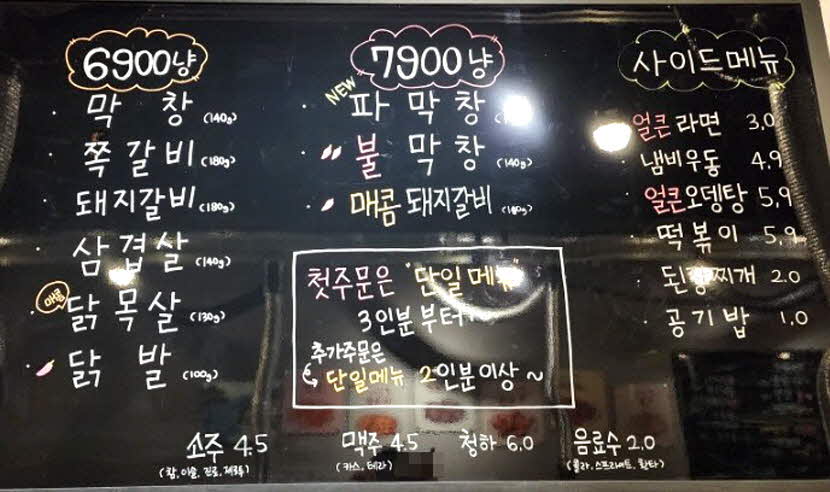 6900냥
막창 (140g)
쪽갈비 (180g)
돼지갈비 (180g)
삼겹살 (140g)
매콤 닭목살 (130g)
닭발 (100g)
7900냥
NEW 파막창
불막창 (140g)
매콤돼지갈비 (180g)
첫주문은 "단일메뉴"
3인분부터~
추가주문은
단일메뉴 2인분이상~
사이드메뉴
얼큰라면 3,0
냄비우동 4,9
얼큰오뎅탕 5,9
떡볶이 5,9
된장찌개 2.0
공기밥 1,0
소주 4.5 맥주 4.5 청하 6.0 음료수 2.0
(참,이슬,진로,제로투) (카스,테라) (콜라,스프라이트,환타)